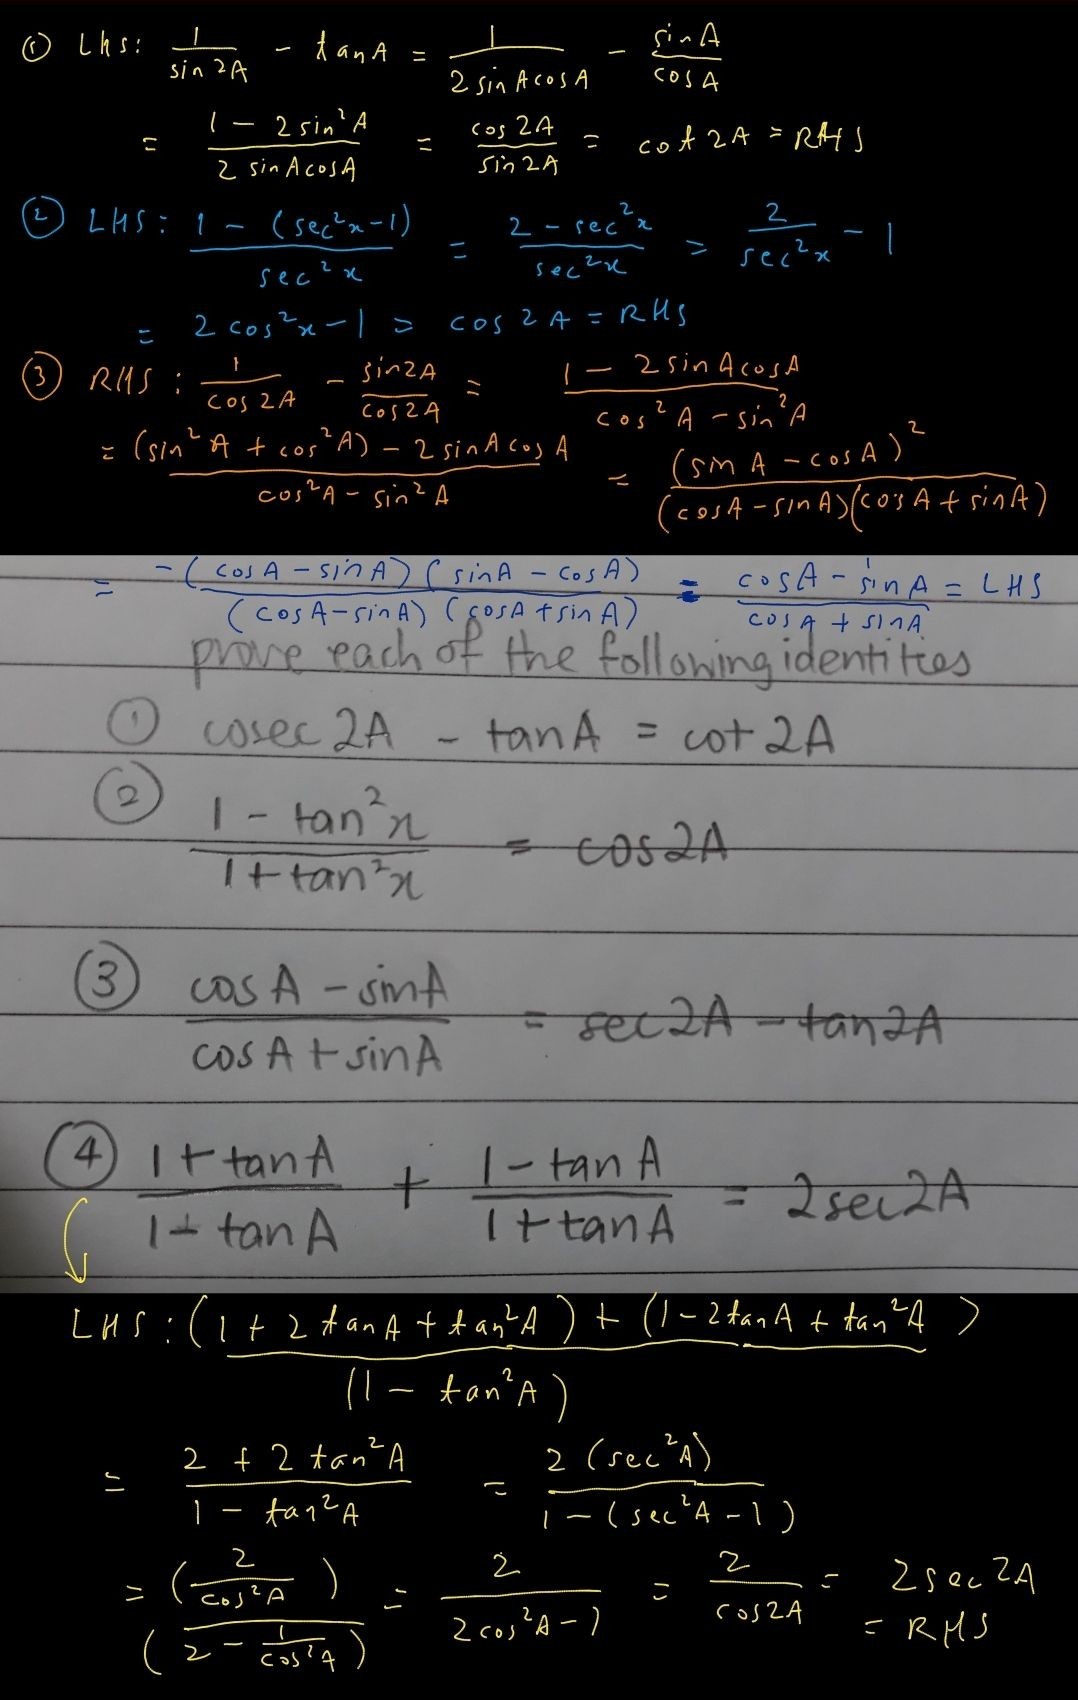 ① Lhs: 1/sin 2A - tan A = 1/2 sin A cos A - sin A/cos A
= 1 - 2 sin²A/2 sin A cos A = cos 2A/sin 2A = cot 2A = RHS
② LHS: 1 - (sec²x - 1)/sec²x = 2 - sec²x/sec²x = 2/sec²x - 1
= 2 cos²x - 1 = cos 2A = RHS
③ RHS: 1/cos 2A - sin 2A/cos 2A = 1 - 2 sin A cos A/cos²A - sin²A
= (sin²A + cos²A) - 2 sin A cos A/cos²A - sin²A = (sin A - cos A)²/(cos A - sin A)(cos A + sin A)
= -(cos A - sin A)(sin A - cos A)/(cos A - sin A)(cos A + sin A) = cos A - sin A/cos A + sin A = LHS
prove each of the following identities
① cosec 2A - tan A = cot 2A
② 1 - tan²x/1 + tan²x = cos 2A
③ cos A - sin A/cos A + sin A = sec 2A - tan 2A
④ 1 + tan A/1 - tan A + 1 - tan A/1 + tan A = 2 sec 2A
LHS: (1 + 2 tan A + tan²A) + (1 - 2 tan A + tan²A)/(1 - tan²A)
= 2 + 2 tan²A/1 - tan²A = 2 (sec²A)/1 - (sec²A - 1)
= (2/cos²A)/(2 - 1/cos²A) = 2/2 cos²A - 1 = 2/cos 2A = 2 sec 2A
= RHS